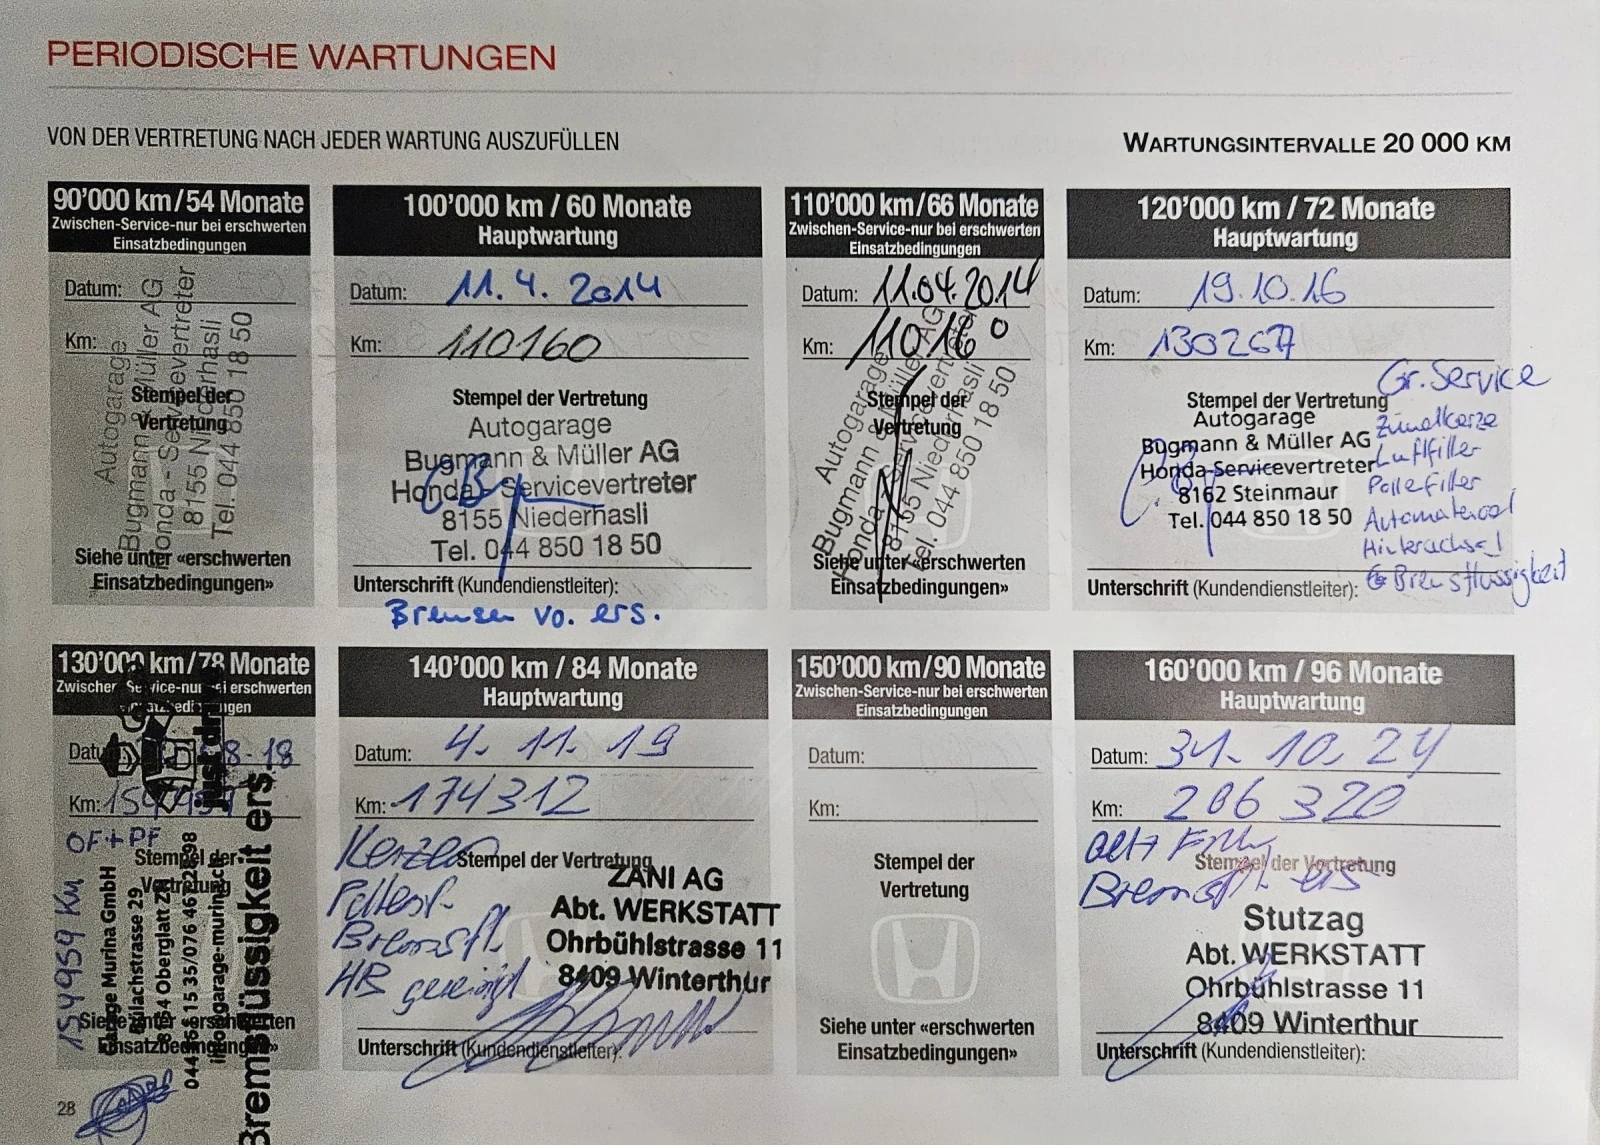 PERIODISCHE WARTUNGEN
VON DER VERTRETUNG NACH JEDER WARTUNG AUSZUFÜLLEN
WARTUNGSINTERVALLE 20 000 KM
90'000 km/54 Monate
Zwischen-Service-nur bei erschwerten
Einsatzbedingungen
Datum:
Km:
Stempel der
Vertretung
Autogarage
Bugmann & Müller AG
Honda-Servicevertreter
8155 Niederhasli
Tel. 044 850 18 50
Siehe unter «erschwerten
Einsatzbedingungen»
100'000 km / 60 Monate
Hauptwartung
Datum: 11.4.2014
Km: 110160
Stempel der Vertretung
Autogarage
Bugmann & Müller AG
Honda-Servicevertreter
8155 Niederhasli
Tel. 044 850 18 50
Unterschrift (Kundendienstleiter):
Bremsen vo. ers.
110'000 km/66 Monate
Zwischen-Service-nur bei erschwerten
Einsatzbedingungen
Datum: 11.04.2014
Km: 110160
Stempel der
Vertretung
Autogarage
Bugmann & Müller AG
Honda-Servicevertreter
8155 Niederhasli
Tel. 044 850 18 50
Siehe unter «erschwerten
Einsatzbedingungen»
120'000 km / 72 Monate
Hauptwartung
Datum: 19.10.16
Km: 130267
Gr. Service
Stempel der Vertretung
Autogarage
Bugmann & Müller AG
Honda-Servicevertreter
8162 Steinmaur
Tel. 044 850 18 50
Zündkerze
Luftfilter
Pollefilter
Automatenoel
Hinterachsöl
Bremsflüssigkeit
Unterschrift (Kundendienstleiter):
130'000 km/78 Monate
Zwischen-Service-nur bei erschwerten
Einsatzbedingungen
Datum: 8-18
Km:
OF+PF
154959 Km
Stempel der
Vertretung
just drive
Garage Murina GmbH
Bülachstrasse 29
8154 Oberglatt ZH
info@garage-murina.ch
Bremsflüssigkeit ers.
Siehe unter «erschwerten
Einsatzbedingungen»
140'000 km / 84 Monate
Hauptwartung
Datum: 4.11.19
Km: 174312
Kerzen
Pollenf.
Bremsfl.
HB gereinigt
Stempel der Vertretung
ZANI AG
Abt. WERKSTATT
Ohrbühlstrasse 11
8409 Winterthur
Unterschrift (Kundendienstleiter):
150'000 km/90 Monate
Zwischen-Service-nur bei erschwerten
Einsatzbedingungen
Datum:
Km:
Stempel der
Vertretung
Siehe unter «erschwerten
Einsatzbedingungen»
160'000 km / 96 Monate
Hauptwartung
Datum: 31.10.24
Km: 206 320
Bremsfl. ers
Stempel der Vertretung
Stutzag
Abt. WERKSTATT
Ohrbühlstrasse 11
8409 Winterthur
Unterschrift (Kundendienstleiter):
28